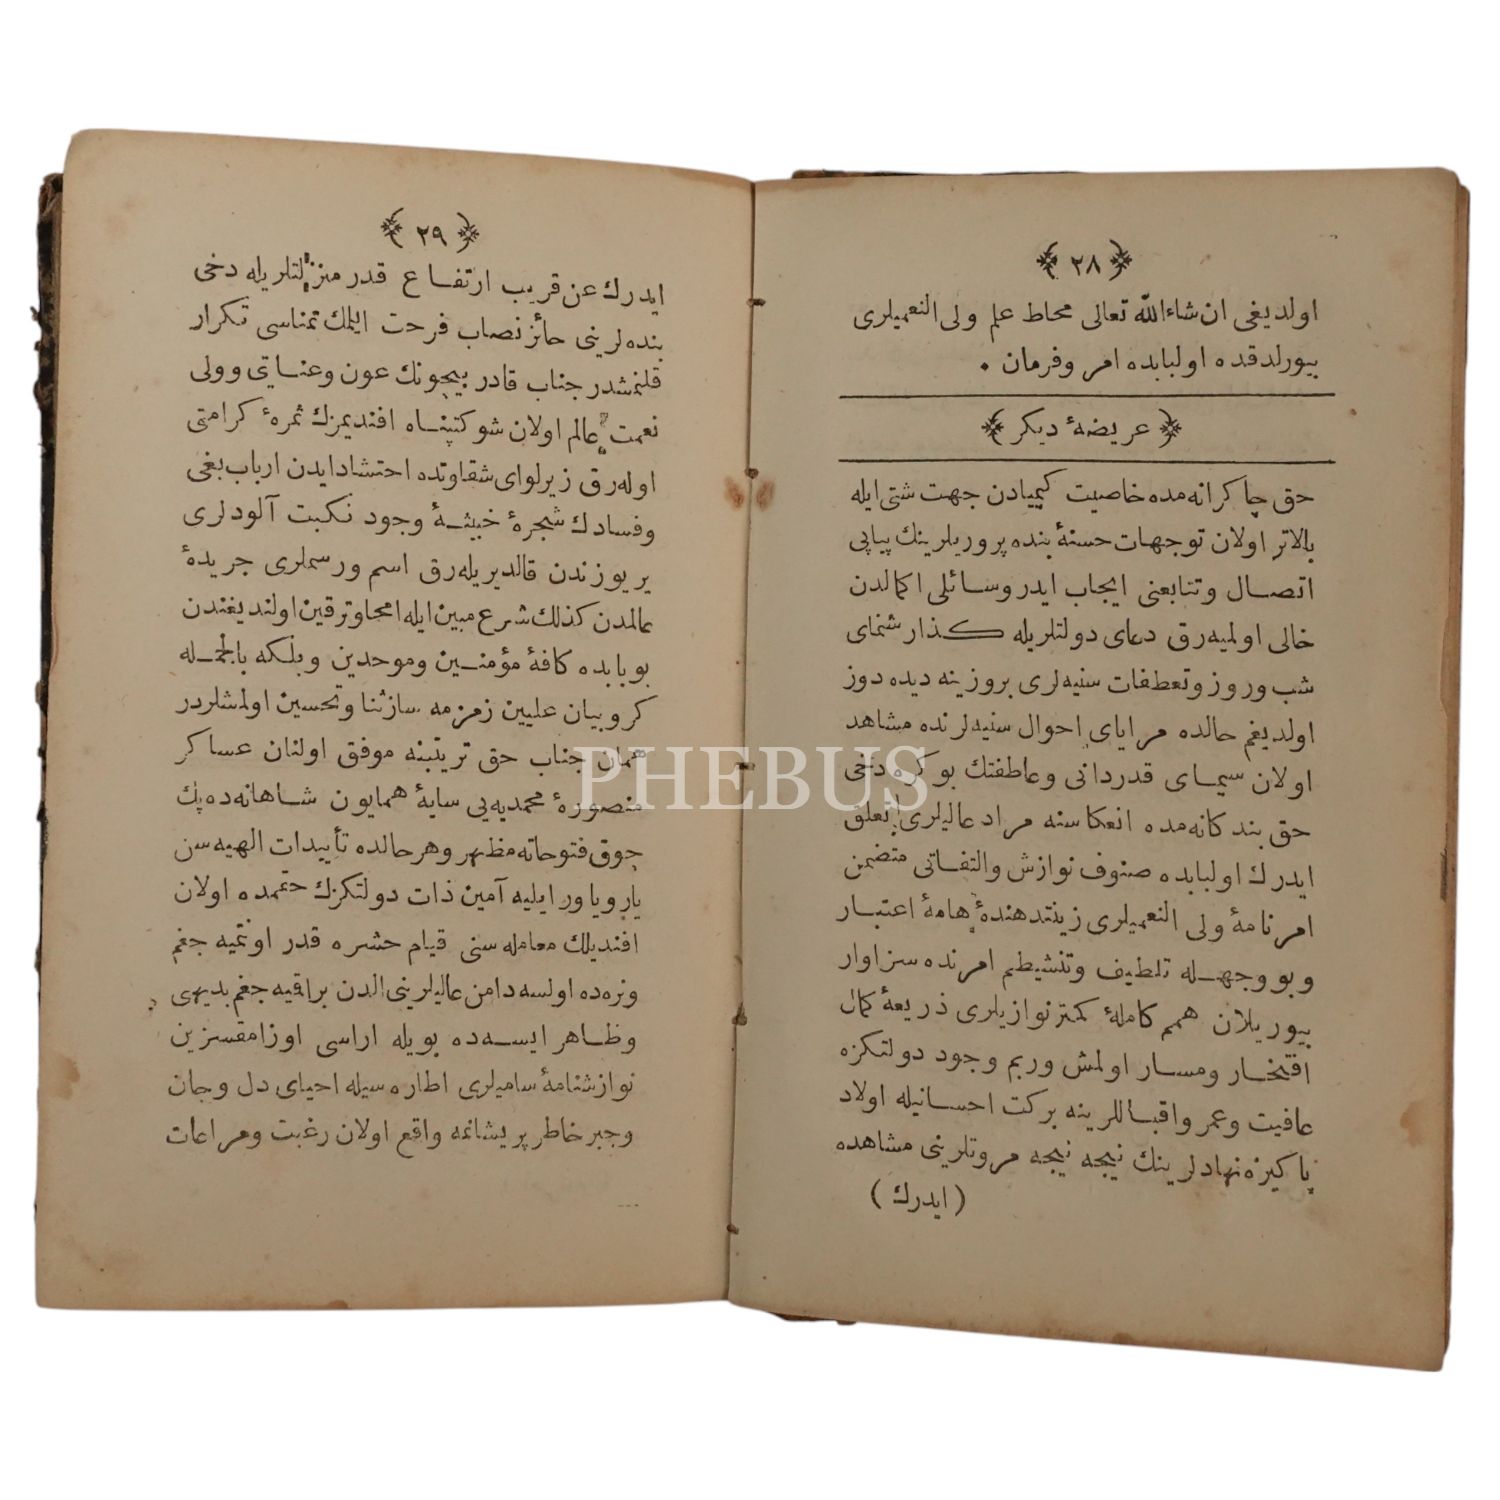 ﴿ ٢٨ ﴾
اولديغى ان شاءالله تعالى محاط علم ولى النعميلرى
بيورلدقده اولبابده امر وفرمان .
﴿ عريضۀ ديكر ﴾
حق چاكرانه مده خاصيت كيميادن جهت شتى ايله
بالاتر اولان توجهات حسنۀ بنده پروريلرينك پياپى
اتصال وتتابعنى ايجاب ايدر وسائلى اكمالدن
خالى اولميه رق دعاى دولتلريله كذار شنماى
شب وروز وتعطفات سنيه لرى بروزينه ديده دوز
اولديغم حالده مراياى احوال سنيه لرنده مشاهد
اولان سيماى قدردانى وعاطفتك بوكره دخى
حق بندكانه مده انعكاسنه مراد عاليلرى تعلق
ايدرك اولبابده صنوف نوازش والتفاتى متضمن
امرنامۀ ولى النعميلرى زينتدهندۀ هامۀ اعتبار
وبووجهله تلطيف وتنشيطم امرنده سزاوار
بيوريلان همم كاملۀ كمترنوازيلرى ذريعۀ كمال
افتخار ومسار اولمش وربم وجود دولتكزه
عافيت وعمر واقباللرينه بركت احسانيله اولاد
پاكيزه نهادلرينك نيجه نيجه مروتلرينى مشاهده
( ايدرك )
﴿ ٢٩ ﴾
ايدرك عن قريب ارتفاع قدر منزلتلريله دخى
بنده لرينى حائز نصاب فرحت ايلمك تمناسى تكرار
قلنمشدر جناب قادر بيچونك عون وعنايتى وولى
نعمت عالم اولان شوكتپناه افنديمزك ثمرۀ كرامتى
اوله رق زيرلواى شقاوتده احتشاد ايدن ارباب بغى
وفسادك شجرۀ خبيثۀ وجود نكبت آلودلرى
يريوزندن قالديريله رق اسم ورسملرى جريدۀ
عالمدن كذلك شرع مبين ايله امحا وترقين اولنديغندن
بوبابده كافۀ مؤمنين وموحدين وبلكه بالجمله
كروبيان عليين زمزمه ساز ثنا وتحسين اولمشلردر
همان جناب حق تريتبنه موفق اولنان عساكر
منصورۀ محمديه يى سايۀ همايون شاهانه ده پك
چوق فتوحاته مظهر وهر حالده تأييدات الهيه سن
يار وياور ايليه آمين ذات دولتكزك حقمده اولان
افنديلك معامله سنى قيام حشره قدر اونتميه جغم
ونره ده اولسه دامن عاليلرينى الدن براقيه جغم بديهى
وظاهر ايسه ده بويله اراسى اوزامقسزين
نوازشنامۀ ساميلرى اطاره سيله احياى دل وجان
وجبر خاطر پريشانمه واقع اولان رغبت ومراعات
PHEBUS